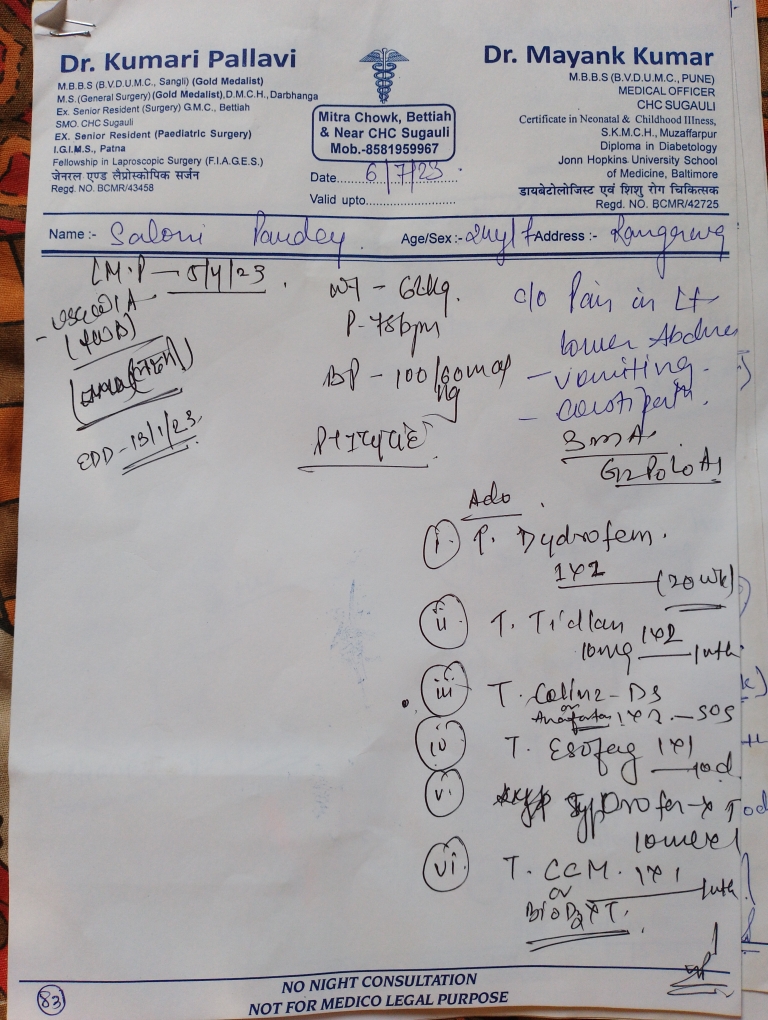 Dr. Kumari Pallavi
M.B.B.S (B.V.D.U.M.C., Sangli) (Gold Medalist)
M.S.(General Surgery)(Gold Medalist),D.M.C.H., Darbhanga
Ex. Senior Resident (Surgery) G.M.C., Bettiah
SMO. CHC Sugauli
EX. Senior Resident (Paediatric Surgery)
I.G.I.M.S., Patna
Fellowship in Laproscopic Surgery (F.I.A.G.E.S.)
जेनरल एण्ड लैप्रोस्कोपिक सर्जन
Regd. NO. BCMR/43458
Mitra Chowk, Bettiah
& Near CHC Sugauli
Mob.-8581959967
Date 6/7/23
Valid upto
Dr. Mayank Kumar
M.B.B.S (B.V.D.U.M.C., PUNE)
MEDICAL OFFICER
CHC SUGAULI
Certificate in Neonatal & Childhood IIIness,
S.K.M.C.H., Muzaffarpur
Diploma in Diabetology
Jonn Hopkins University School
of Medicine, Baltimore
डायबेटोलोजिस्ट एवं शिशु रोग चिकित्सक
Regd. NO. BCMR/42725
Name :- Saloni Pandey Age/Sex :- 24y/f Address :-
LM.P - 5/4/23
EDD - 13/1/23
WT - 62kg.
P-78bpm
BP - 100/60
c/o Pain in Lt
lower
- vomiting.
-
G2P0L0A1
Adv
i. Dydrofem.
1x2 (20 wk)
ii T. Tidilan
10mg 1x2
iii T. Colinz-DS
or 1x2 - SOS
iv T. Esofag 1x1
v. Syp Orofer-x
vi. T. CCM. 1x1
or
NO NIGHT CONSULTATION
NOT FOR MEDICO LEGAL PURPOSE
83